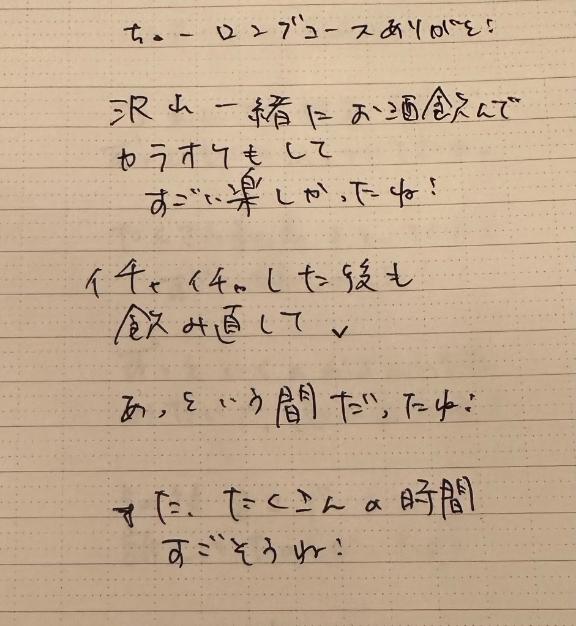 ちょーロングコースありがと!
沢山一緒にお酒飲んで
カラオケもして
すごい楽しかったね!
イチャイチャした後も
飲み直して
あっという間だったね!
また、たくさんの時間
すごそうね!